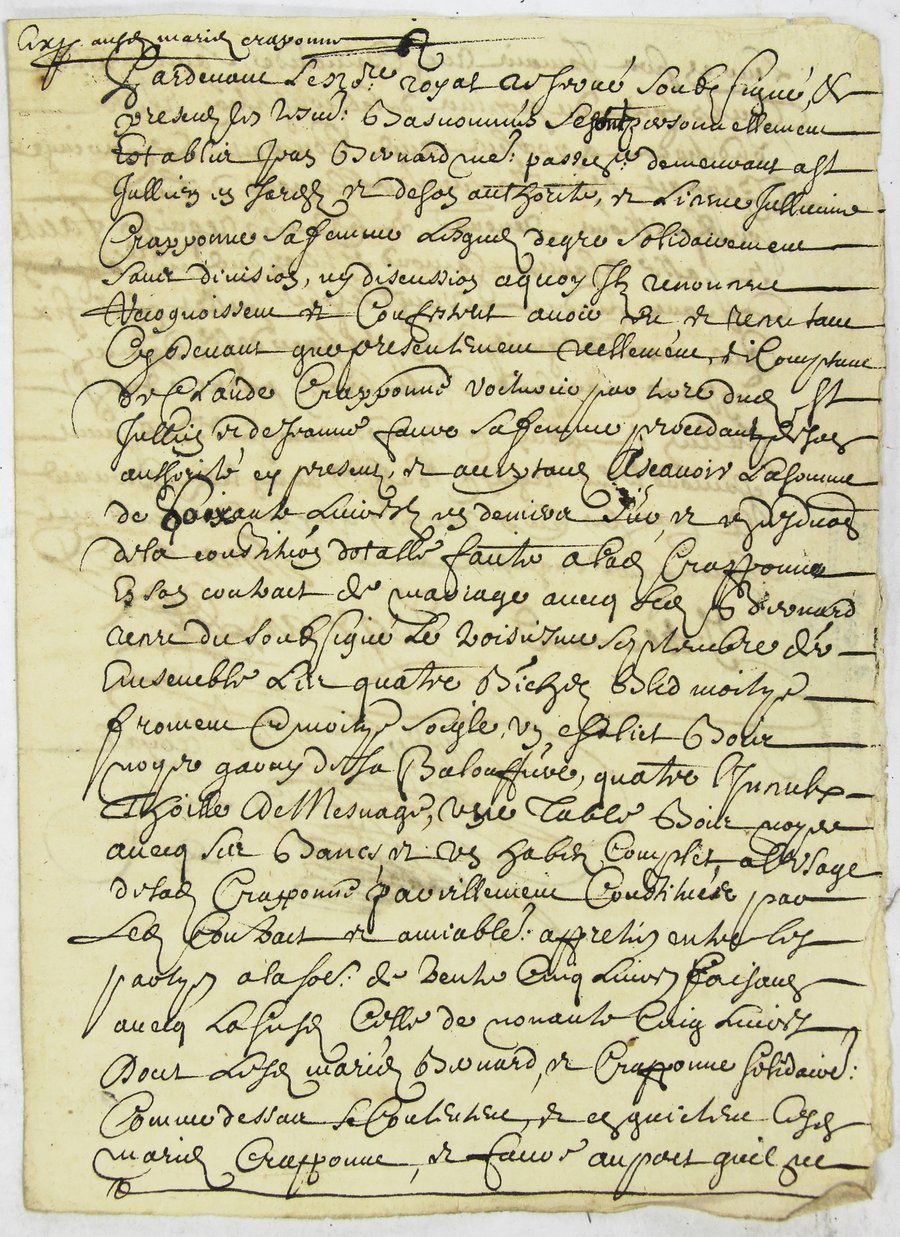 Exp. ausd. mariés crapponne
Pardevant Le No.re royal reservé soub.signé, &
presens les tesm. Basnommés se sont personnellement
Establis Jean Bernard me. demeurant a St
Jullien en Jarés et de son authorité, et Lienne Jullienne
Crapponne sa femme Lesquels de gre solidairement
sans division, ny discussion a quoy Ils renoncent
Recognoissent et Confessent avoir eu et receu tant
Cy devant que presentement reellement, et Comptant
de Claude Crapponne voiturier par terre dud. St
Jullien et de Jeanne faure sa femme procedant de son
authorité cy present, et acceptant Ascavoir La somme
de soixante Livres en deniers et en deduction
de la constitution dotalle faitte a lad. Crapponne
En son contract de mariage avecq led. Bernard
receu du soub.signé Le troisiesme septembre der
Ensemble Les quatre Bichets Bled moityé
froment et moityé seigle, un chaslict Bois
noyer garny de sa Balouffiere, quatre linceulx
thoille de Mesnage, une Table Bois noyer
avecq ses Bancs et un habit Complet, a l'usage
de lad. Crapponne pareillement Constitués par
Led. Contract et amiable. appretiés entre les
partyes a la so.e de trente Cinq Livres faisant
avecq La susd. Celle de nonante Cinq Livres
Dont Lesd. mariés Bernard, et Crapponne solidaire.
Comme dessus se Contentent, et en quictent Lesd.
mariés Crapponne, et faure au pact qu'il ne